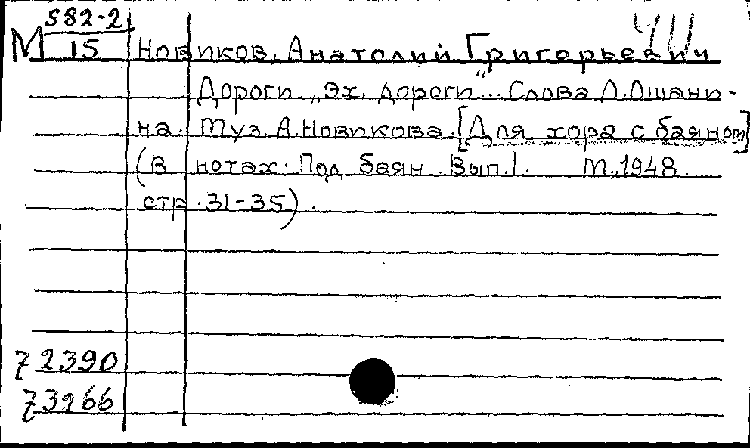 М 582-2
15 Новиков, Анатолий Григорьевич
Дороги „Эх, дороги"... Слова Л.Ошани-
на. Муз. А.Новикова. [Для хора с баяном]
(В нотах: Под баян. Вып.1. М.,1948.
стр. 31-35).
72390
73266